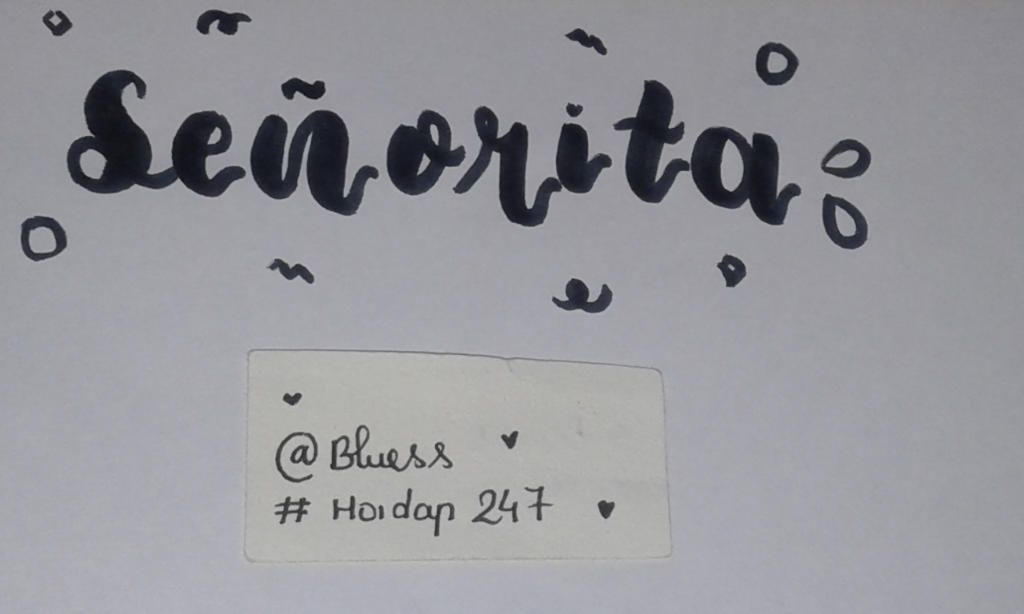 Señorita
@Bluess
# Hoidap 247